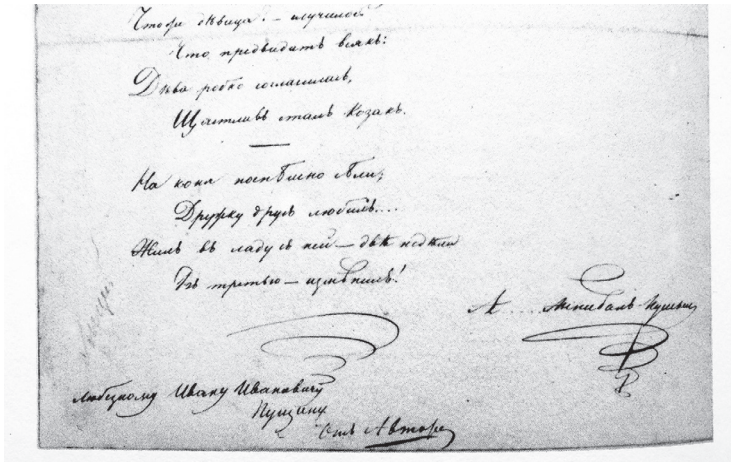 Чтоже дѣвица? — случилось
Что предвидитъ всякъ:
Дѣва робко согласилась,
Щастливъ сталъ Козакъ.
На коня поспѣшно сѣли;
Дружку другъ любилъ....
Жилъ въ ладу съ ней — двѣ недѣли
Въ третью — измѣнилъ!
А.... Аннибалъ-Пушкинъ
Любезному Ивану Ивановичу
Пущину
Отъ Автора